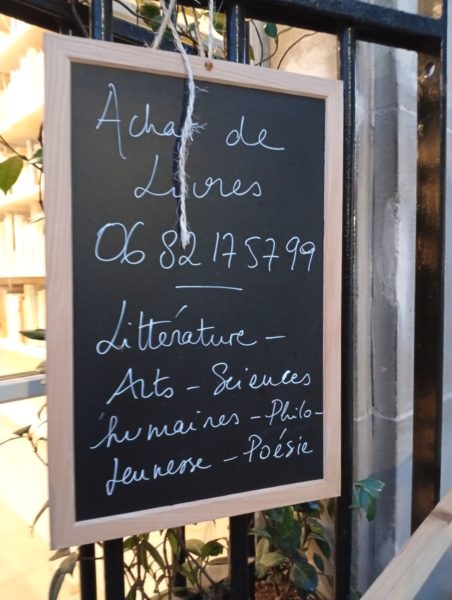 Achat de
Livres
06 82 17 57 99
Littérature -
Arts - Sciences
humaines - Philo -
Jeunesse - Poésie